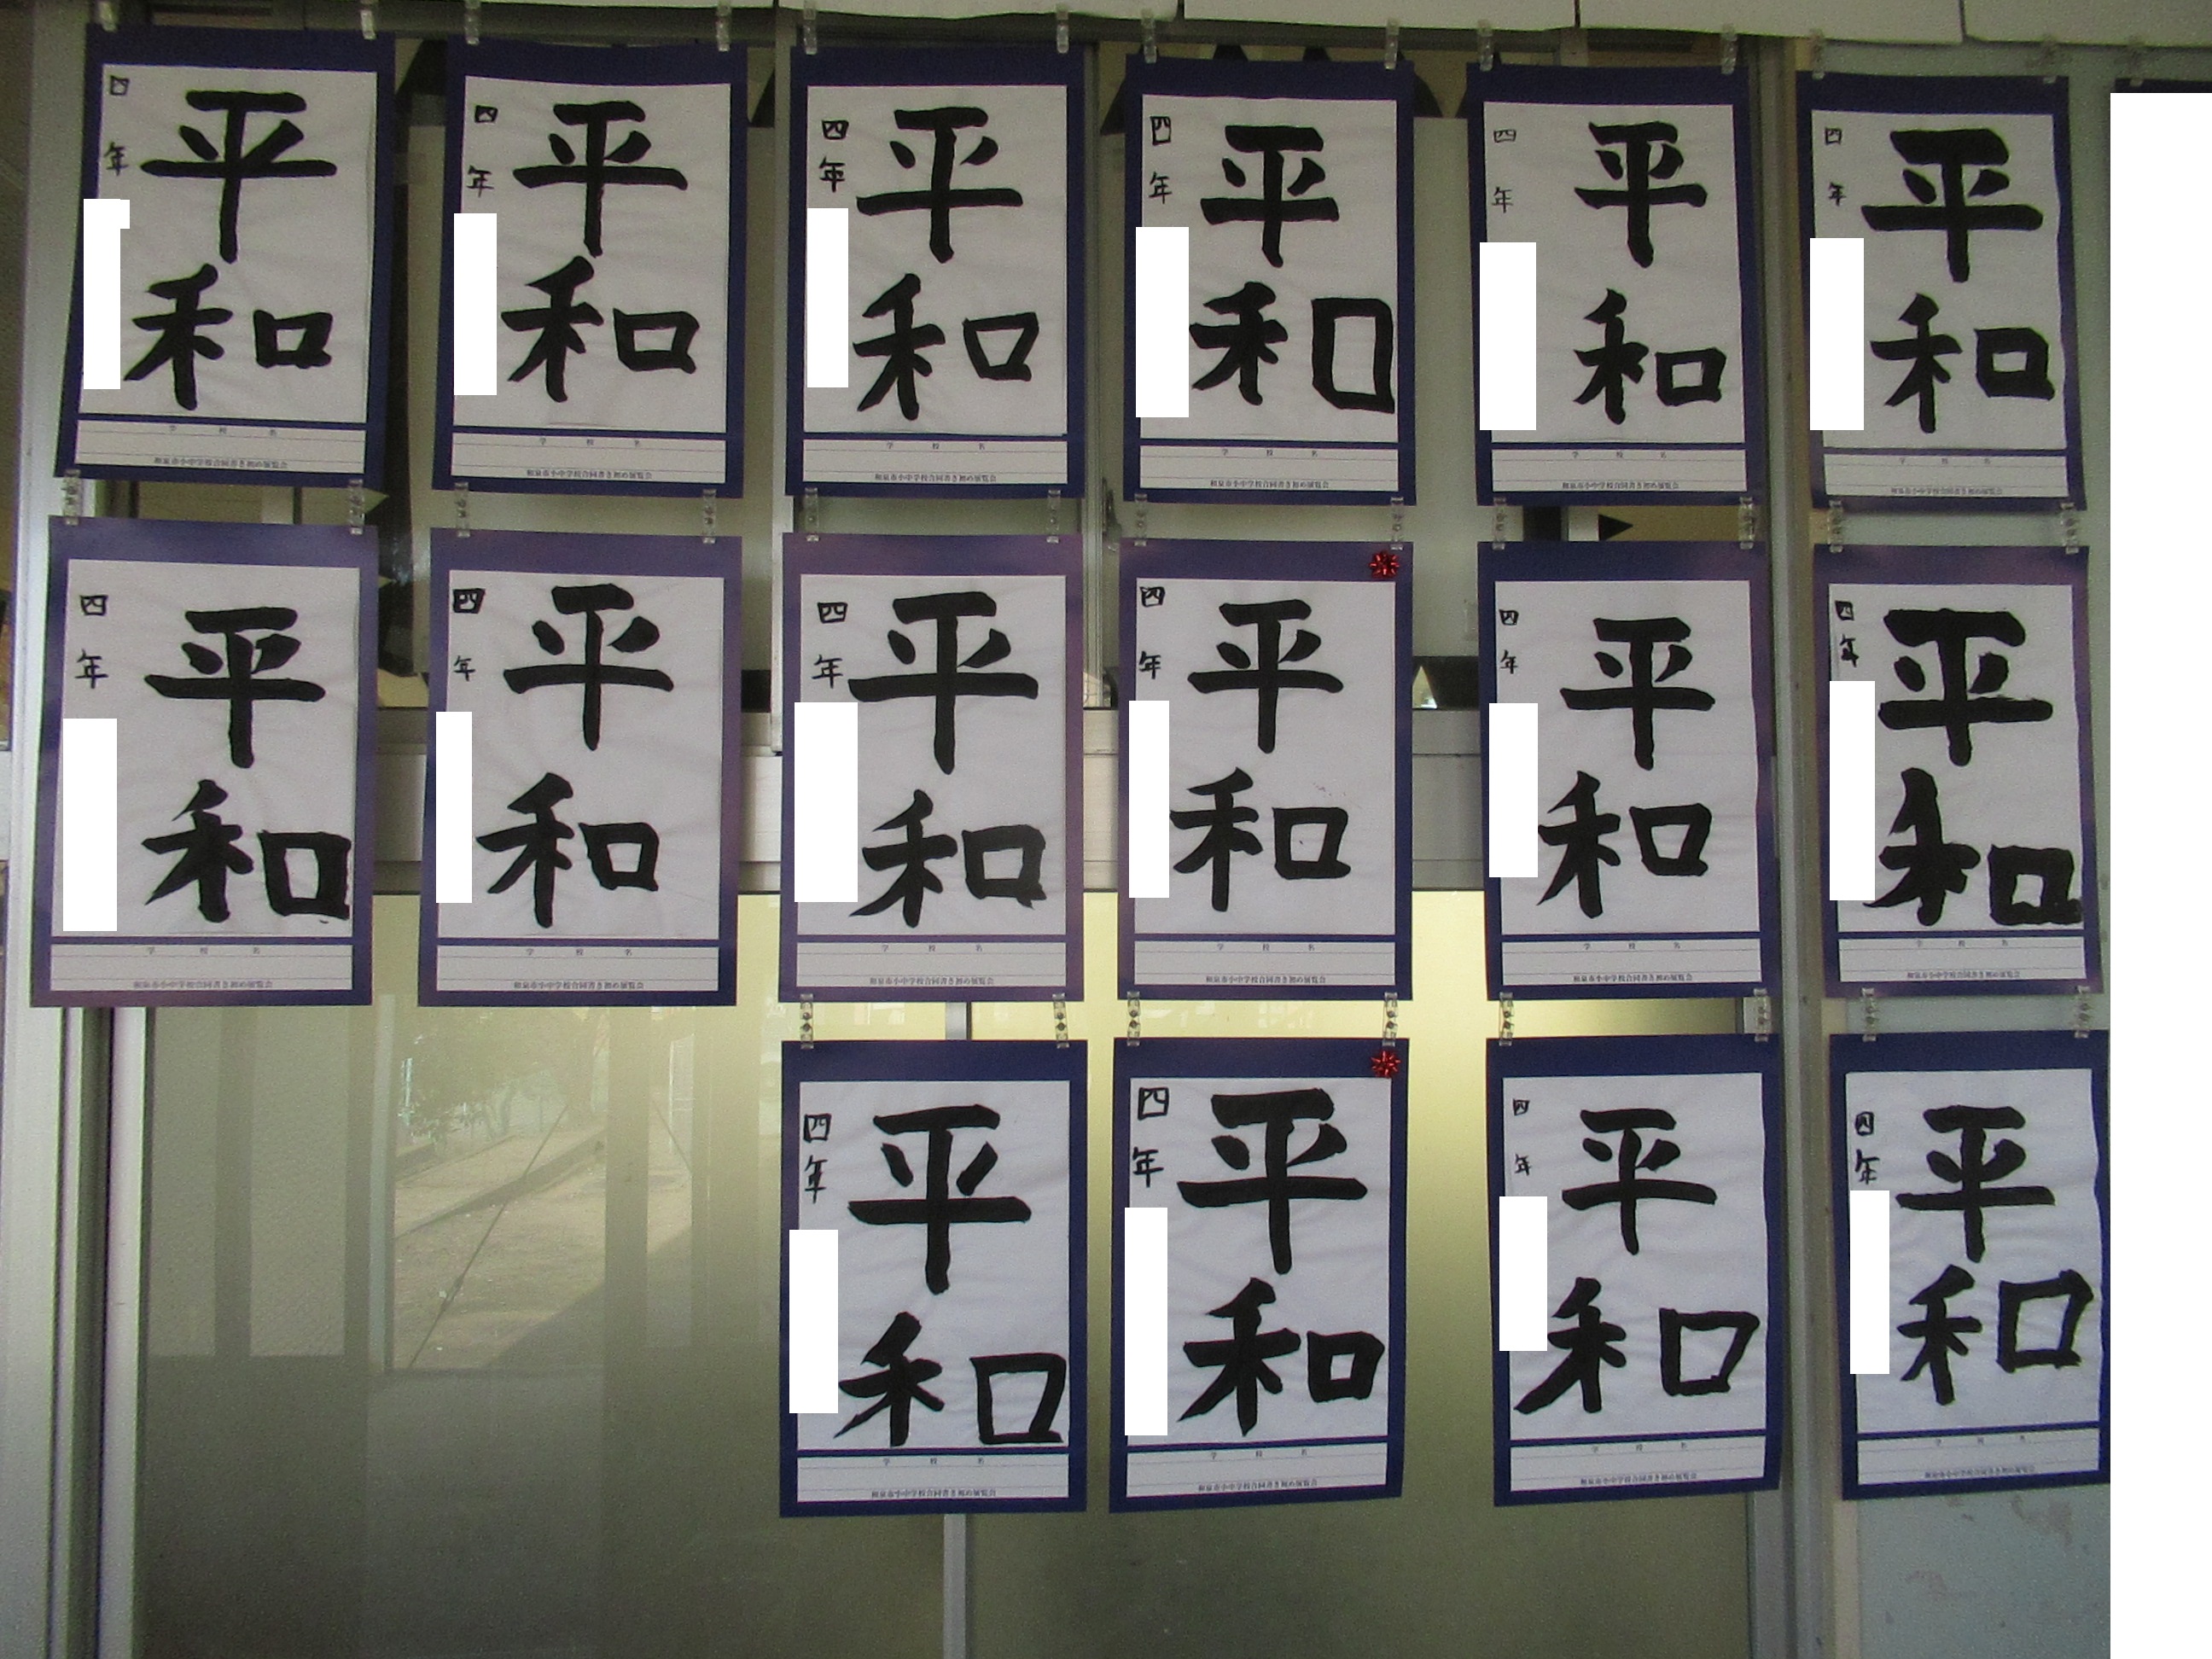 平和
四年
学校名
和泉市小中学校合同書き初め展覧会
平和
四年
学校名
和泉市小中学校合同書き初め展覧会
平和
四年
学校名
和泉市小中学校合同書き初め展覧会
平和
四年
学校名
和泉市小中学校合同書き初め展覧会
平和
四年
学校名
和泉市小中学校合同書き初め展覧会
平和
四年
学校名
和泉市小中学校合同書き初め展覧会
平和
四年
学校名
和泉市小中学校合同書き初め展覧会
平和
四年
学校名
和泉市小中学校合同書き初め展覧会
平和
四年
学校名
和泉市小中学校合同書き初め展覧会
平和
四年
学校名
和泉市小中学校合同書き初め展覧会
平和
四年
学校名
和泉市小中学校合同書き初め展覧会
平和
四年
学校名
和泉市小中学校合同書き初め展覧会
平和
四年
学校名
和泉市小中学校合同書き初め展覧会
平和
四年
学校名
和泉市小中学校合同書き初め展覧会
平和
四年
学校名
和泉市小中学校合同書き初め展覧会
平和
四年
学校名
和泉市小中学校合同書き初め展覧会